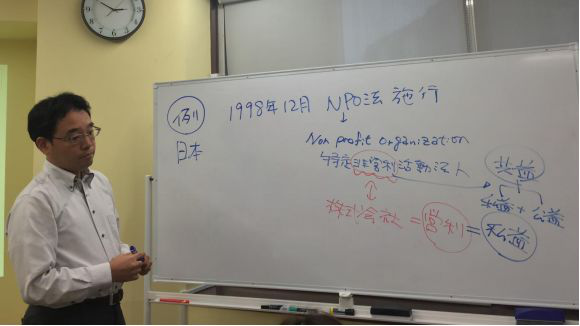 例
1998年12月 NPO法 施行
日本
Non profit organization
特定非営利活動法人
共益
私益 + 公益
株式会社 = 営利 = 私益